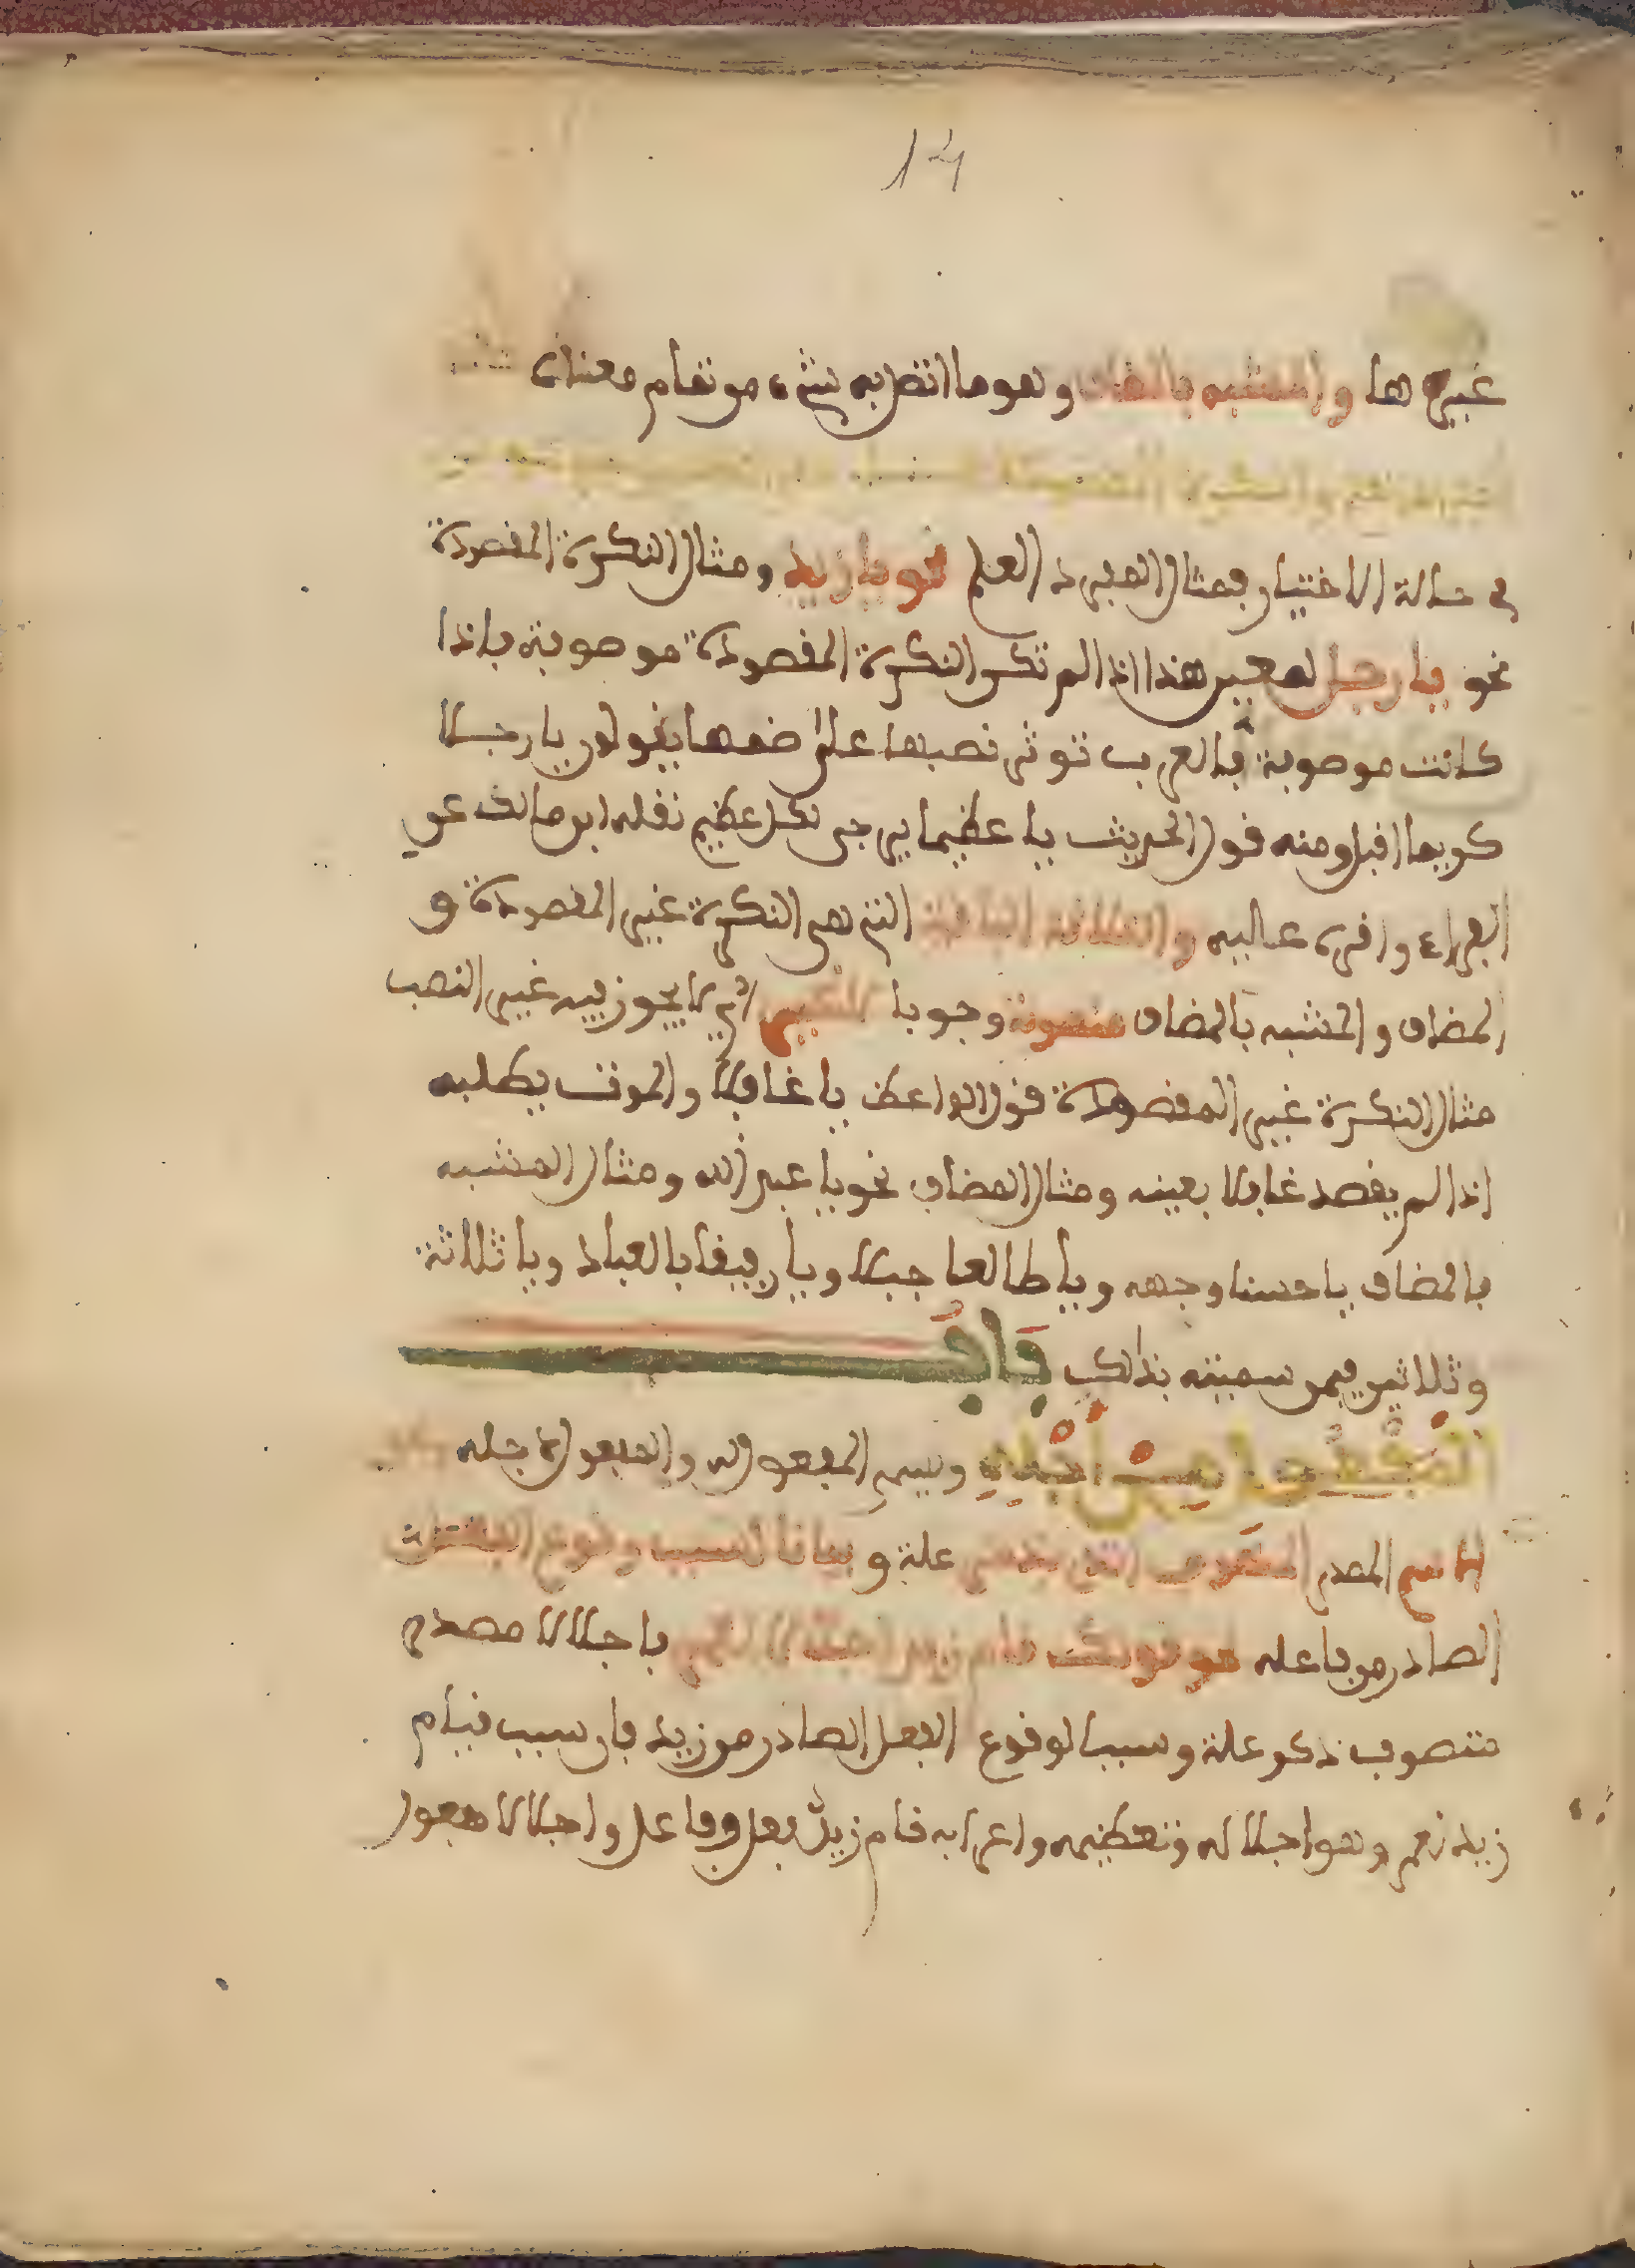 14
غيرها والمشبه بالمضاف وهو ما اتصل به شيء من تمام معناه
في حالة الاختيار فمثال المفرد العلم نحو يا زيد ومثال النكرة المقصودة
نحو يا رجل لمعين هذا اذا لم تكن النكرة المقصودة موصوفة فإذا
كانت موصوفة فالعرب توثر نصبها على ضمها يقولون يا رجلا
كريما اقبل ومنه قول الحديث يا عظيما يرجى لكل عظيم نقله ابن مالك عن
الفراء واقره عليه والثلاثة الباقية التي هي النكرة غير المقصودة و
المضاف والمشبه بالمضاف منصوبة وجوبا لا غير اي لا يجوز فيه غير النصب
مثال النكرة غير المقصودة قول الواعظ يا غافلا والموت يطلبه
اذا لم يقصد غافلا بعينه ومثال المضاف نحو يا عبد الله ومثال المشبه
بالمضاف يا حسنا وجهه ويا طالعا جبلا ويا رفيقا بالعباد ويا ثلاثة
وثلاثين فيمن سميته بذلك باب
المفعول من اجله ويسمى المفعول له والمفعول لاجله
الاسم المصدر المنصوب الذي يذكر علة و بيانا لسبب وقوع الفعل
الصادر من فاعله نحو قولك قام زيد اجلالا لعمر فاجلالا مصدر
منصوب ذكر علة وسببا لوقوع الفعل الصادر من زيد فان سبب قيام
زيد لعمر وهو اجلاله وتعظيمه واعرابه قام زيد فعل وفاعل واجلالا مفعول